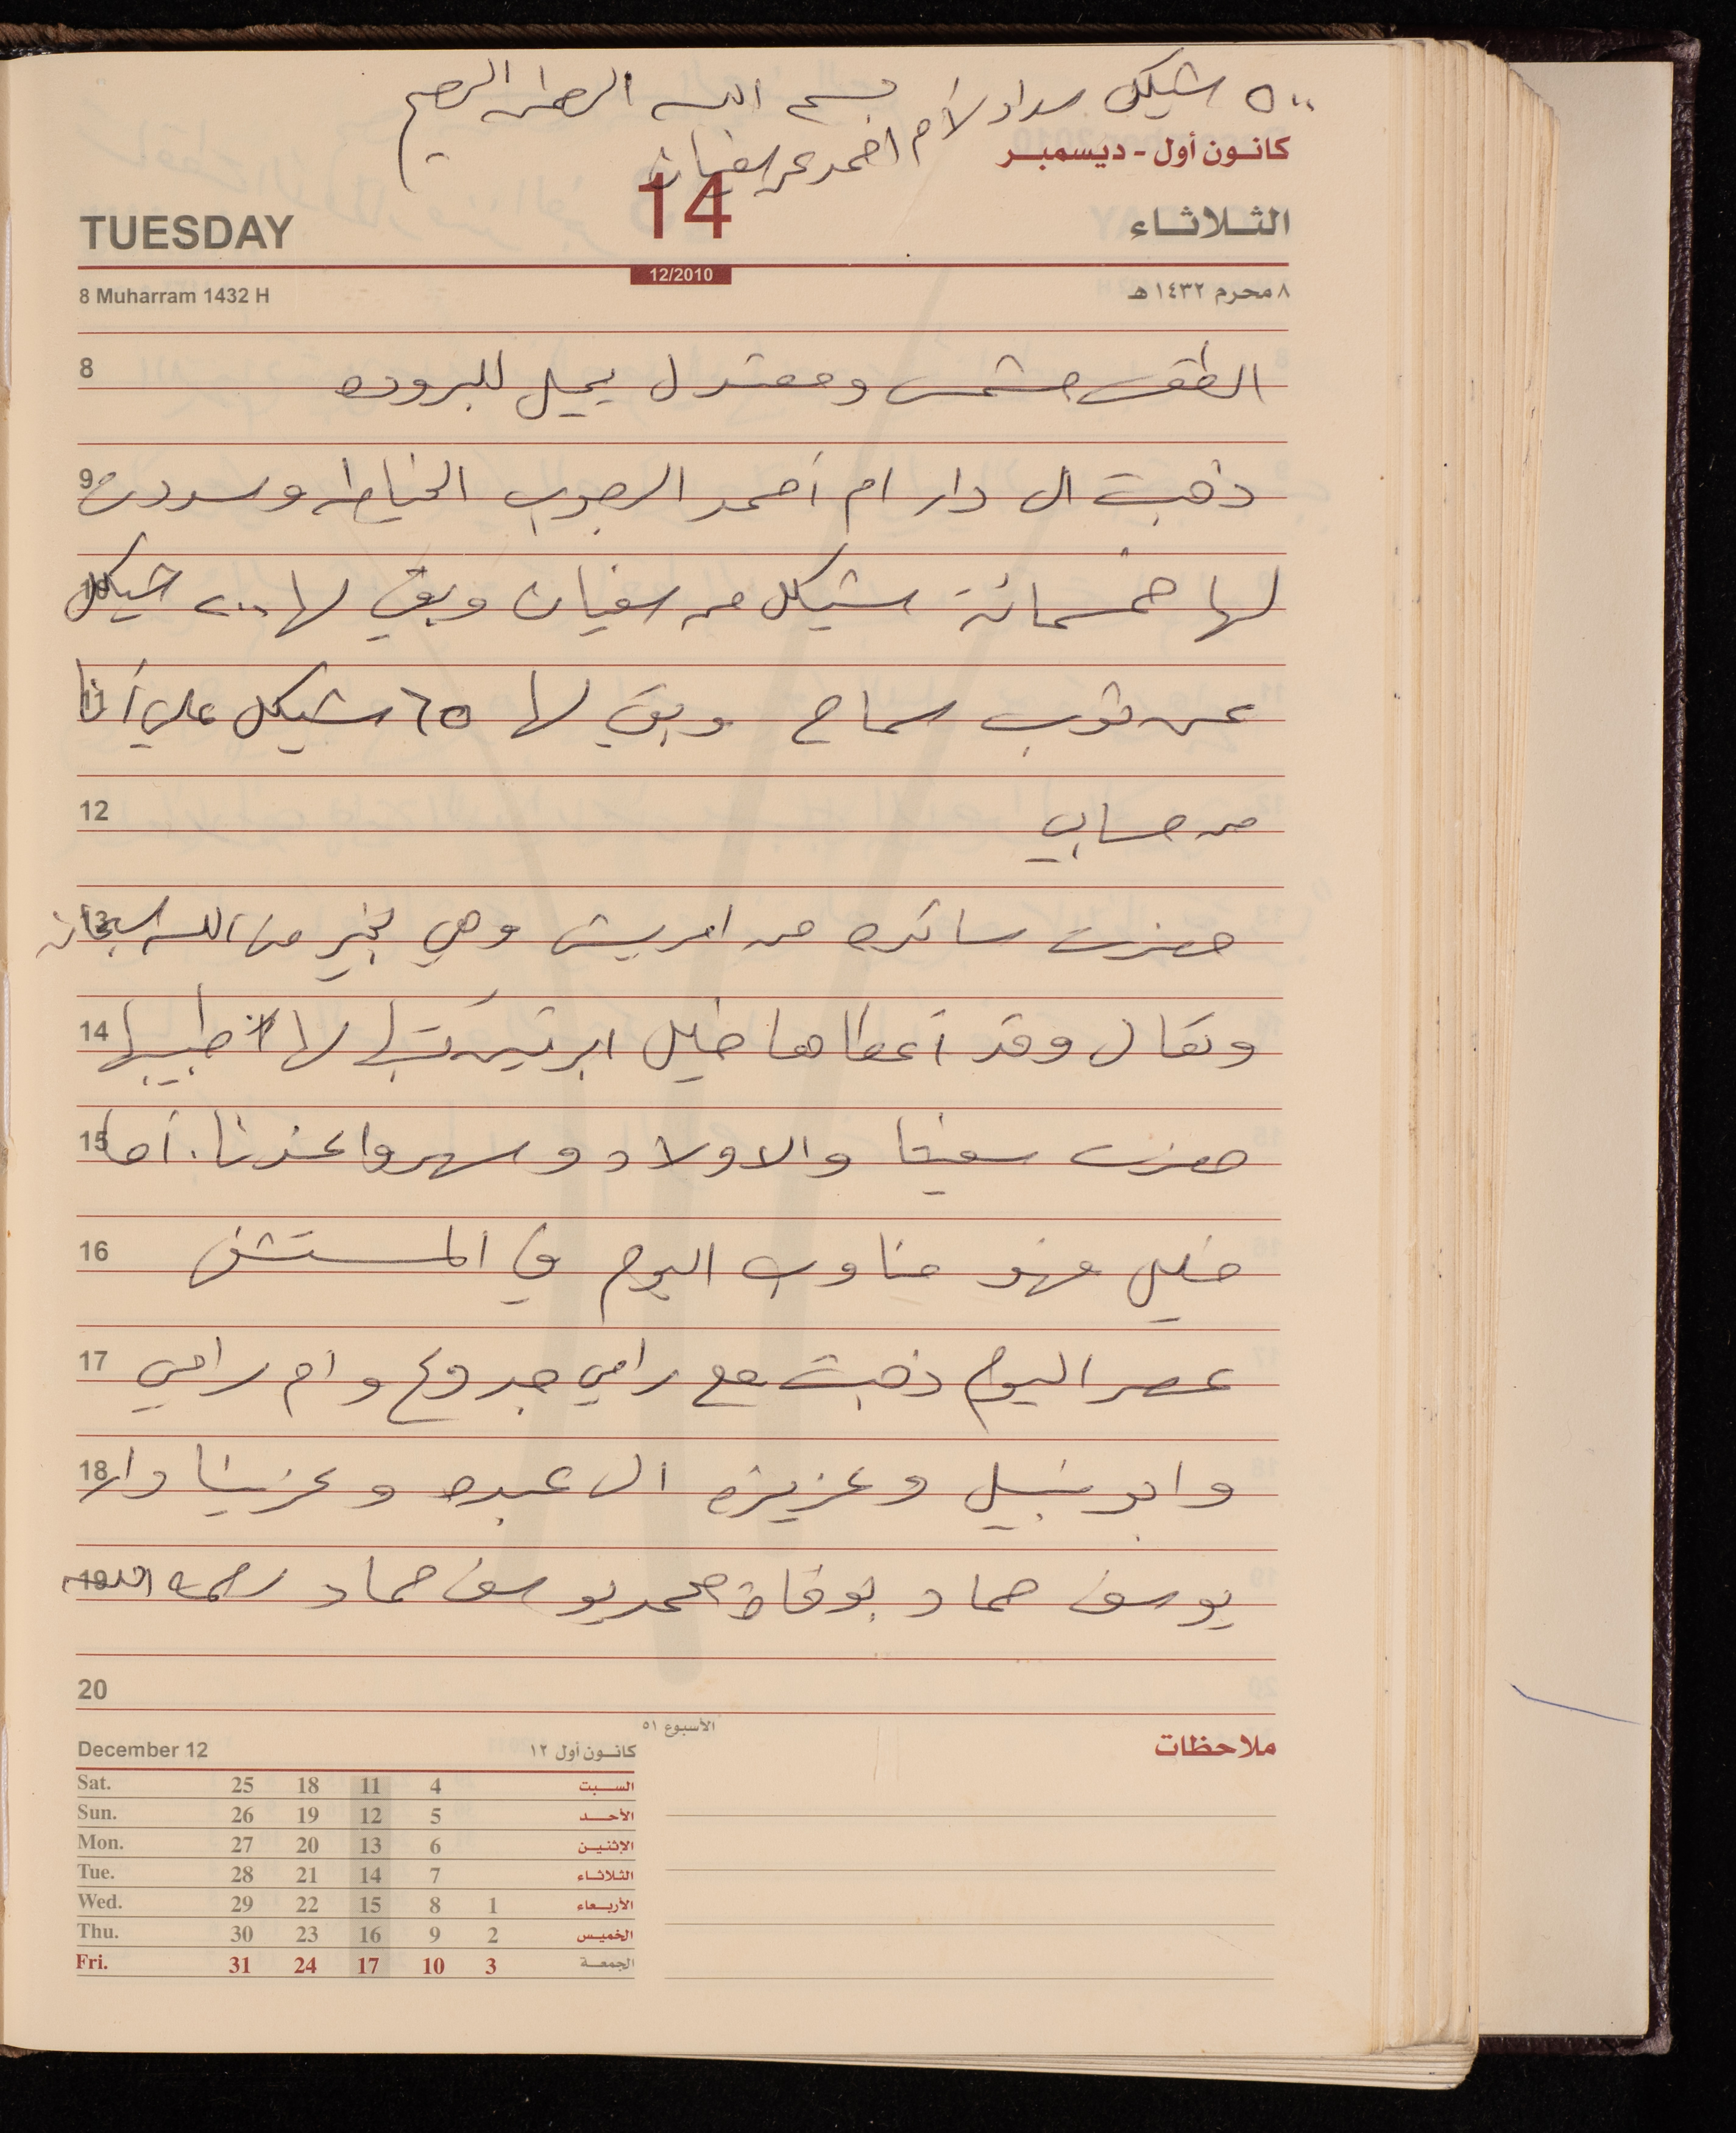 ٥٠٠ شيكل سداد لأم أحمد عن سفيان
بسم الله الرحمن الرحيم
كانون أول - ديسمبر
TUESDAY 14 الثلاثاء
12/2010
8 Muharram 1432 H ٨ محرم ١٤٣٢ هـ
8 الطقس مشمس ومعتدل يميل للبروده
9 ذهبت الى دار ام أحمد الرجوب الخياطه وسددت
10 لها خمسمائة شيكل من سفيان وبقي لها ٢٠٠ شيكل
11 عن ثوب سماح وبقي لها ٦٥ شيكل علي أنا
12 من حسابي
13 حضرت سائده من ادريش وهي بخير من الله سبحانه
14 وتعالى وقد أعطاها خليل ابرتين لها طبيبها
15 حضرت سفيقا والاولاد وسهروا عندنا. أما
16 خليل فهو مناوب اليوم في المستشفى
17 عصر اليوم ذهبت مع رامي جدوع وام رامي
18 وابو نبيل وعزيزه الى عبده وعزينا دار
19 يوسف حماد بوفاة محمد يوسف حماد رحمه الله
20
الأسبوع ٥١
ملاحظات
December 12 كانون أول ١٢
Sat. 25 18 11 4 السبت
Sun. 26 19 12 5 الأحد
Mon. 27 20 13 6 الإثنين
Tue. 28 21 14 7 الثلاثاء
Wed. 29 22 15 8 1 الأربعاء
Thu. 30 23 16 9 2 الخميس
Fri. 31 24 17 10 3 الجمعة